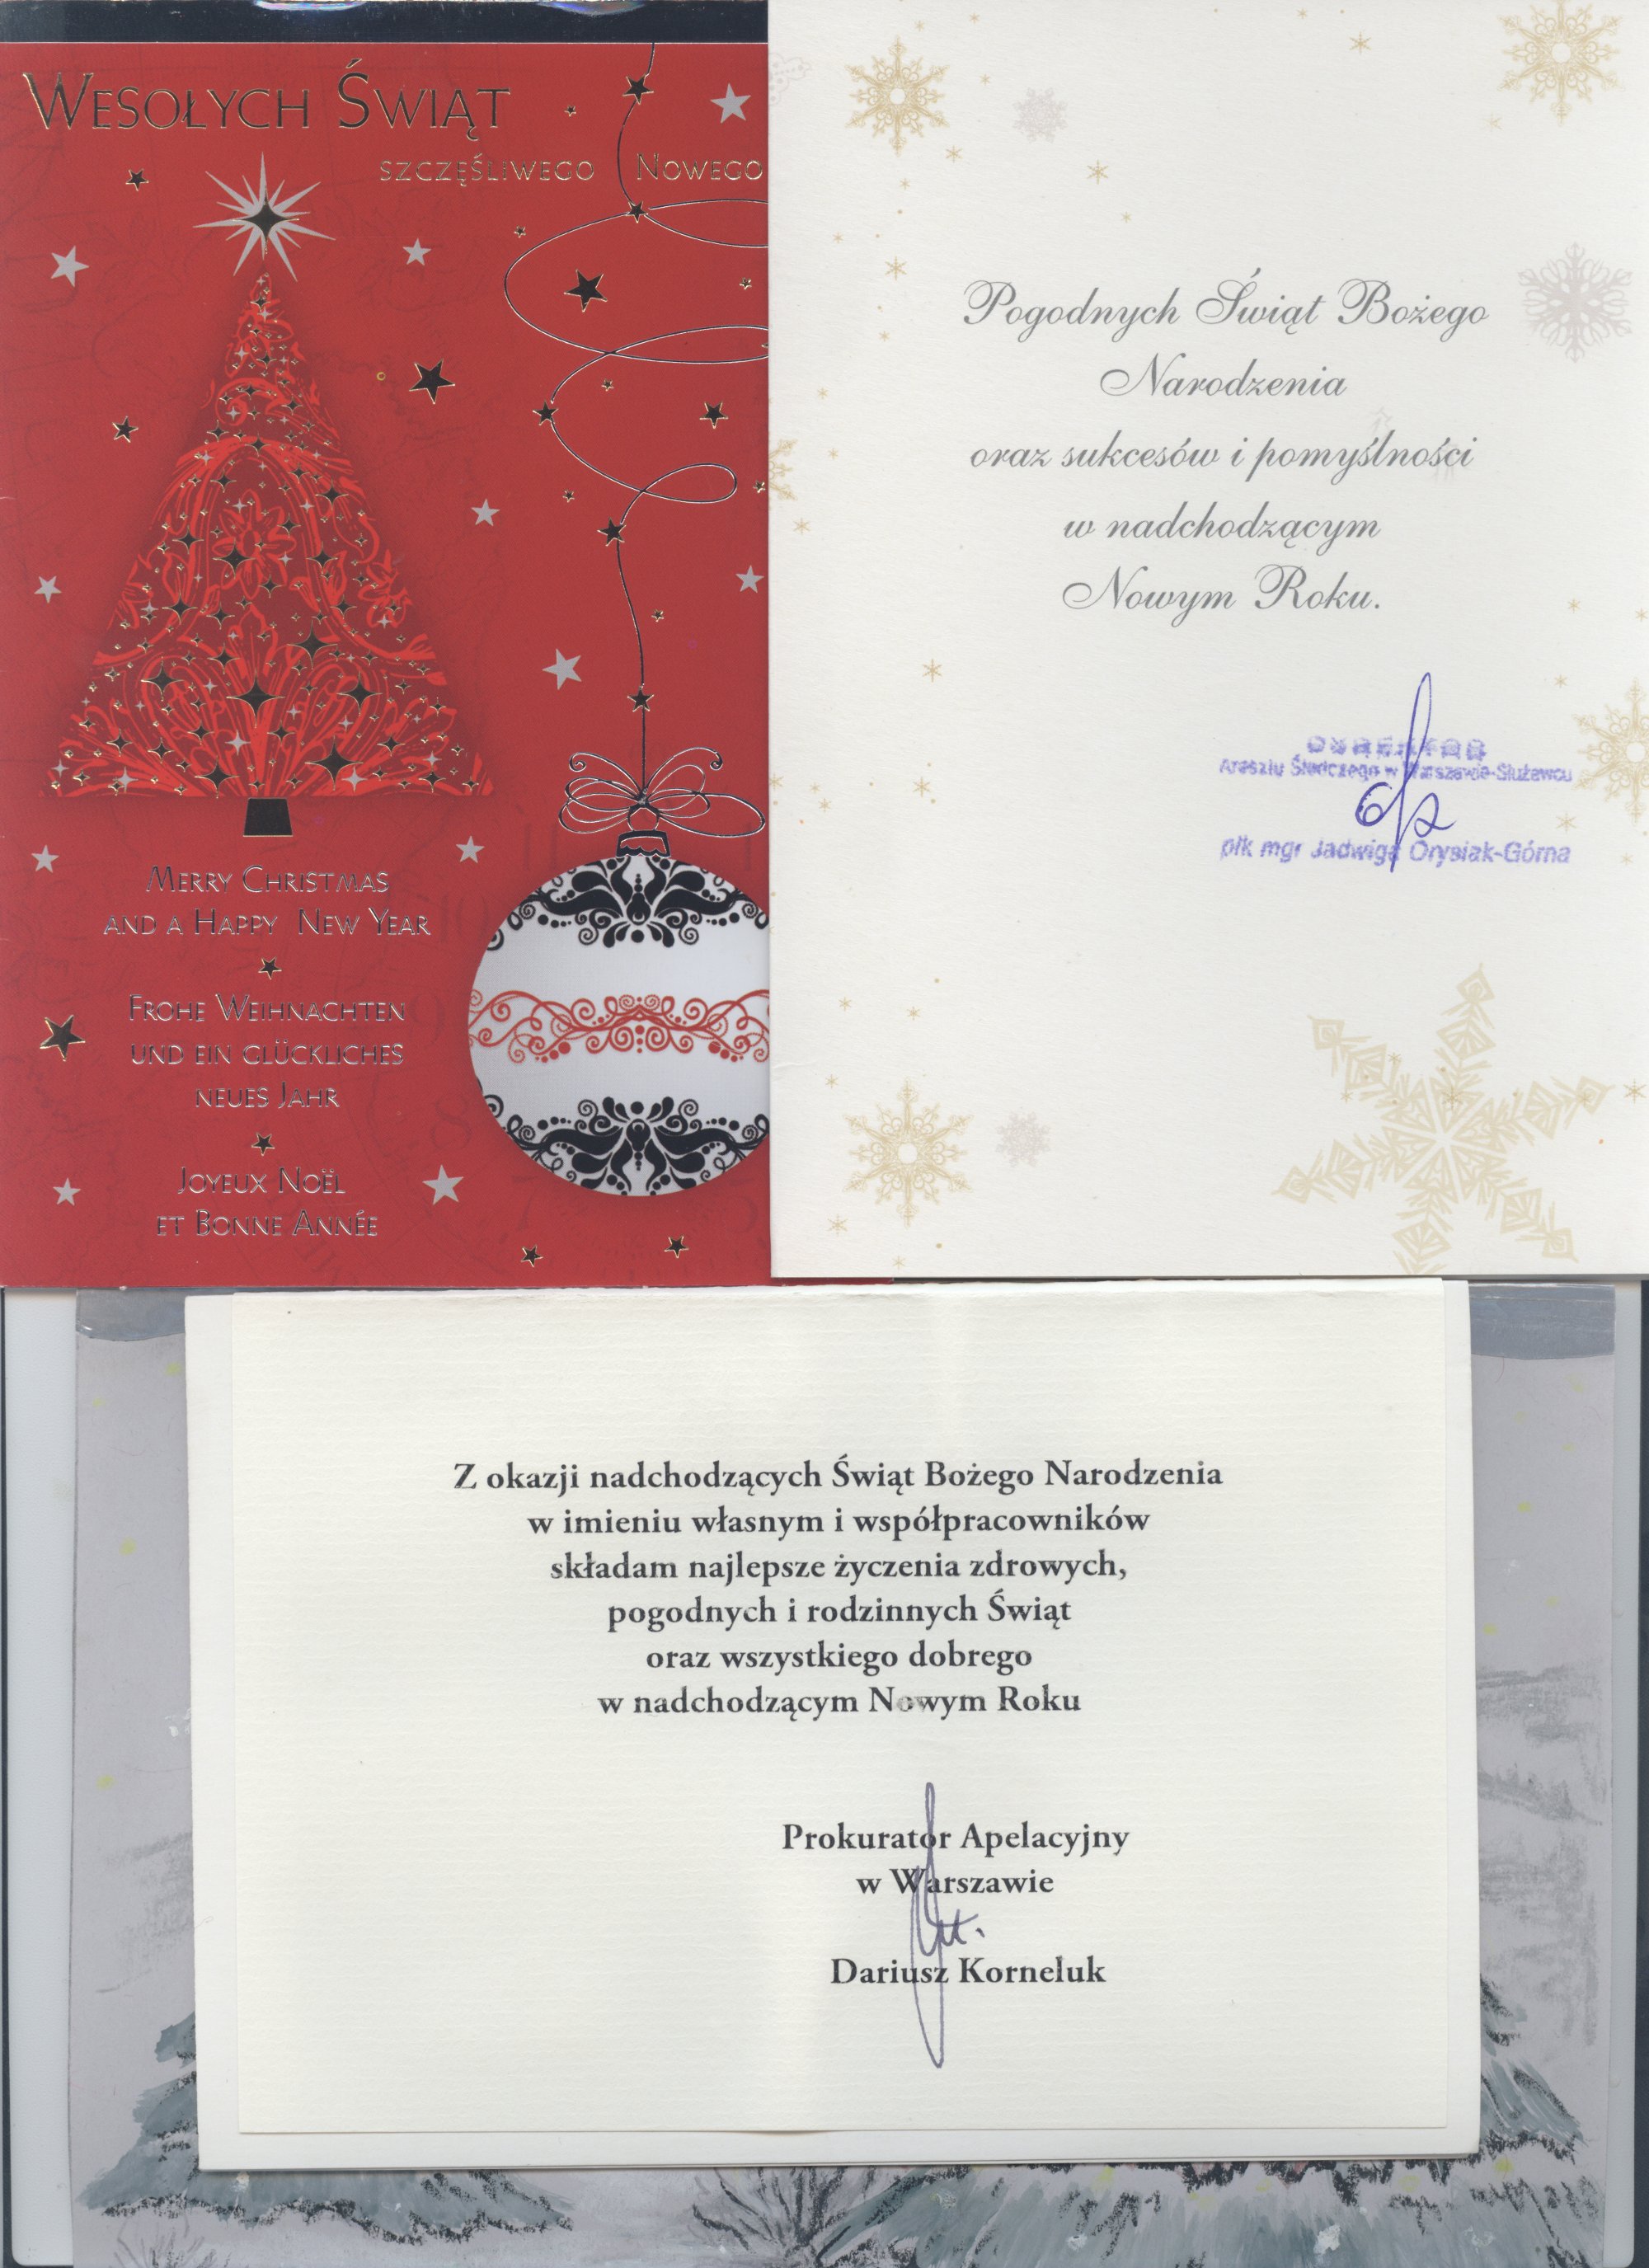 WESOŁYCH ŚWIĄT
SZCZĘŚLIWEGO NOWEGO
MERRY CHRISTMAS
AND A HAPPY NEW YEAR
FROHE WEIHNACHTEN
UND EIN GLÜCKLICHES
NEUES JAHR
JOYEUX NOËL
ET BONNE ANNÉE
Pogodnych Świąt Bożego
Narodzenia
oraz sukcesów i pomyślności
w nadchodzącym
Nowym Roku.
DYREKTOR
Aresztu Śledczego w Warszawie-Służewcu
płk mgr Jadwiga Orysiak-Górna
Z okazji nadchodzących Świąt Bożego Narodzenia
w imieniu własnym i współpracowników
składam najlepsze życzenia zdrowych,
pogodnych i rodzinnych Świąt
oraz wszystkiego dobrego
w nadchodzącym Nowym Roku
Prokurator Apelacyjny
w Warszawie
Dariusz Korneluk